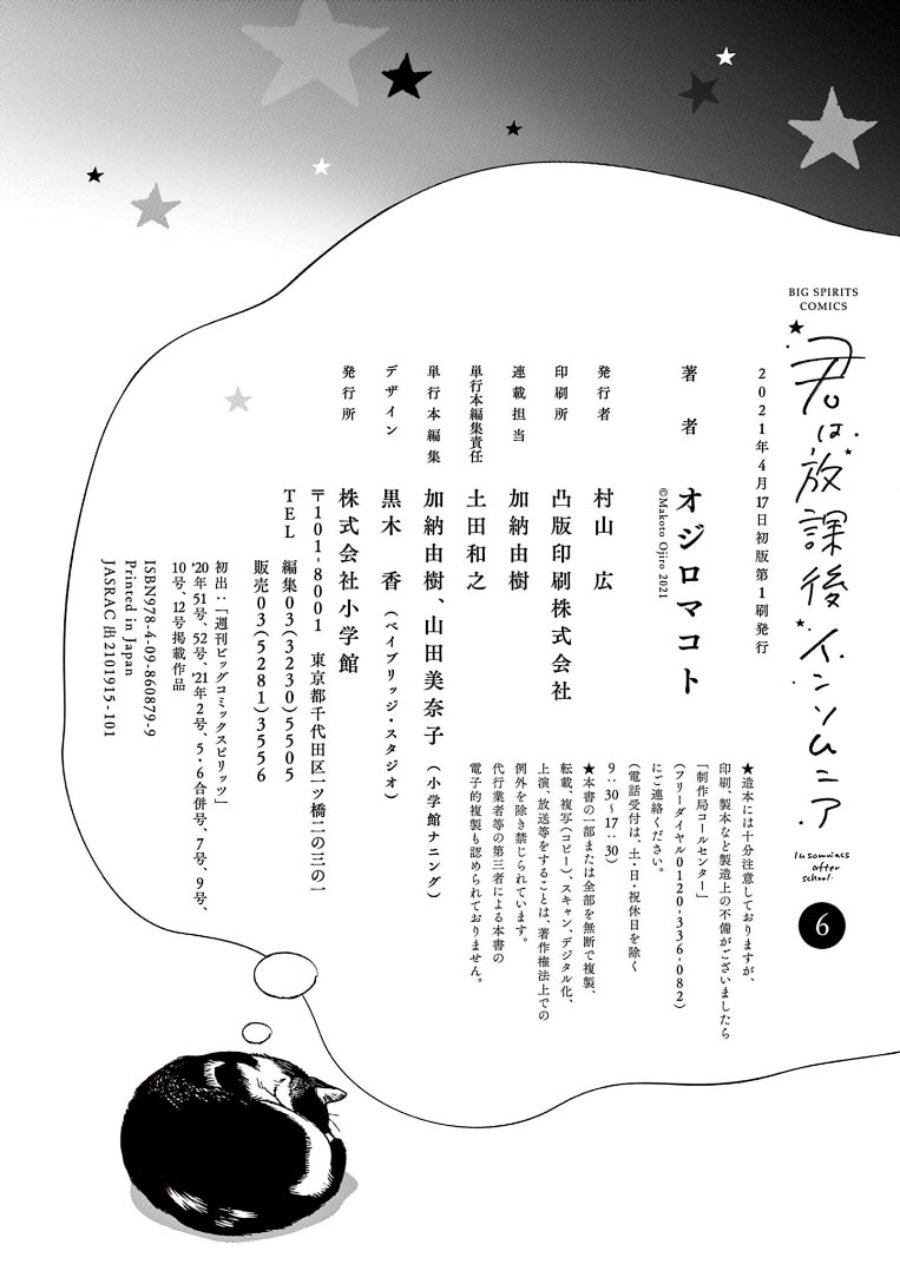 BIG SPIRITS
COMICS
君は放課後インソムニア
Insomniacs
after
school.
6
2021年4月17日初版第1刷発行
著者 オジロマコト
©Makoto Ojiro 2021
発行者 村山 広
印刷所 凸版印刷株式会社
連載担当 加納由樹
単行本編集責任 土田和之
単行本編集 加納由樹、山田美奈子(小学館ナニング)
デザイン 黒木 香(ベイブリッジ・スタジオ)
発行所 株式会社小学館
〒101-8001 東京都千代田区一ツ橋二の三の一
TEL 編集03(3230)5505
販売03(5281)3556
初出:「週刊ビッグコミックスピリッツ」
'20年51号、52号、'21年2号、5・6合併号、7号、9号、
10号、12号掲載作品
ISBN978-4-09-860879-9
Printed in Japan
JASRAC 出 2101915-101
★造本には十分注意しておりますが、
印刷、製本など製造上の不備がございましたら
「制作局コールセンター」
(フリーダイヤル0120-336-082)
にご連絡ください。
(電話受付は、土・日・祝休日を除く
9:30〜17:30)
★本書の一部または全部を無断で複製、
転載、複写(コピー)、スキャン、デジタル化、
上演、放送等をすることは、著作権法上での
例外を除き禁じられています。
代行業者等の第三者による本書の
電子的複製も認められておりません。